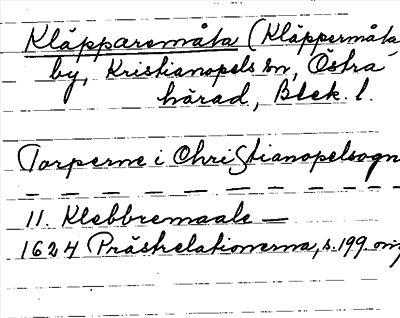 Kläpparemåla (Kläppermåla
by, Kristianopels sn, Östra
härad, Blek. l.
Torperne i Christianopelsogn
— — — — — — — — — —
11. Klebbremaale —
1624 Prästrelationerna, s. 199. orig